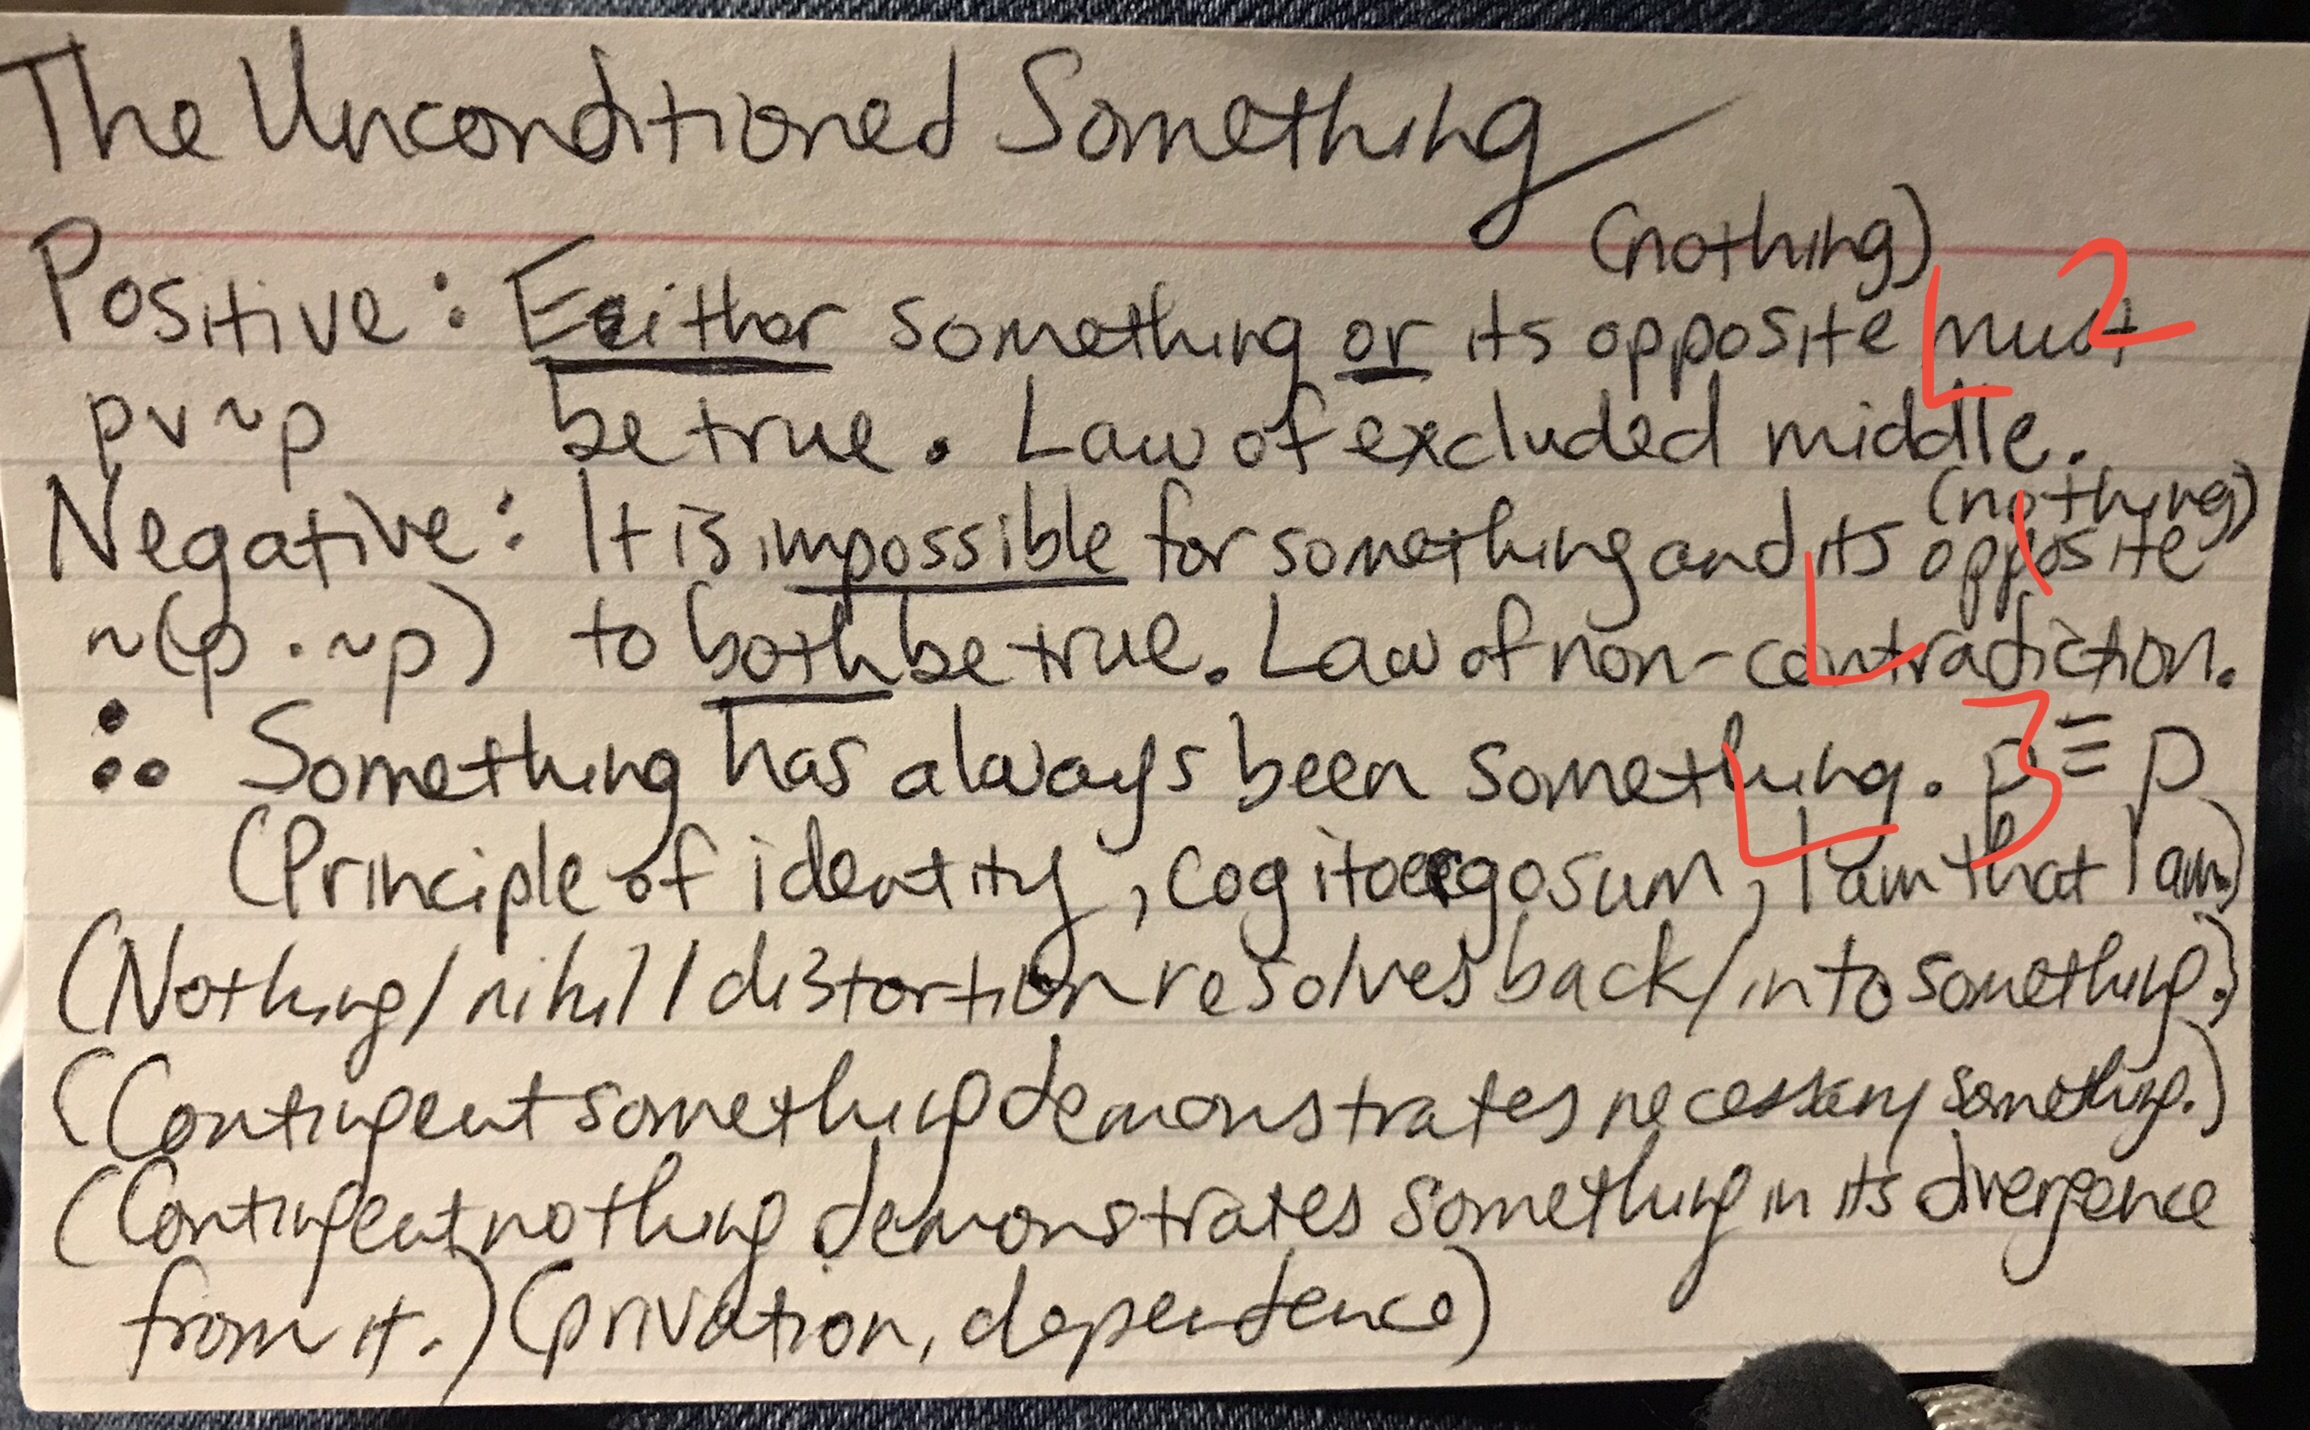 The Unconditioned Something
(nothing)
Positive: Eeither something or its opposite must L2
p v ~p be true. Law of excluded middle.
(nothing)
Negative: It is impossible for something and its opposite L1
~(p · ~p) to both be true. Law of non-contradiction.
∴ Something has always been something. p ≡ p L3
(Principle of identity, cogito ergo sum, I am that I am.)
(Nothing/nihil/distortion resolves back/into something.)
(Contingent something demonstrates necessary something.)
(Contingent nothing demonstrates something in its divergence
from it.) (privation, dependence)